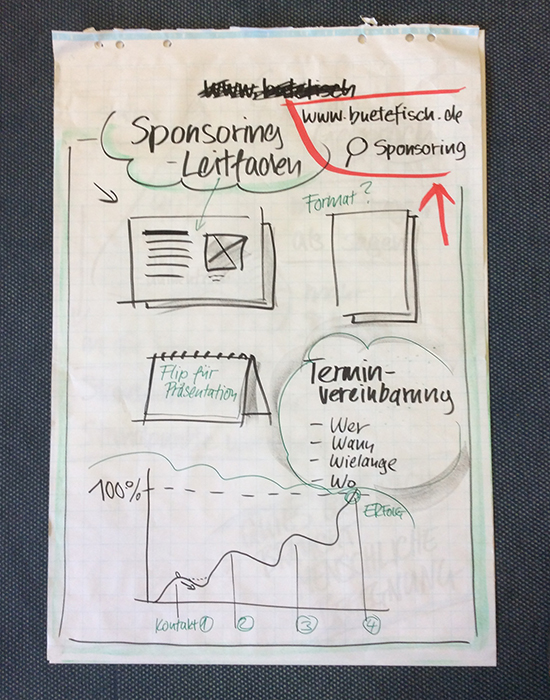 www.buetefisch
www.buetefisch.de
Sponsoring
Sponsoring
-Leitfaden
Format?
Flip für
Präsentation
Termin-
vereinbarung
- Wer
- Wann
- Wielange
- Wo
100%
ERFOLG
Kontakt 1 2 3 4